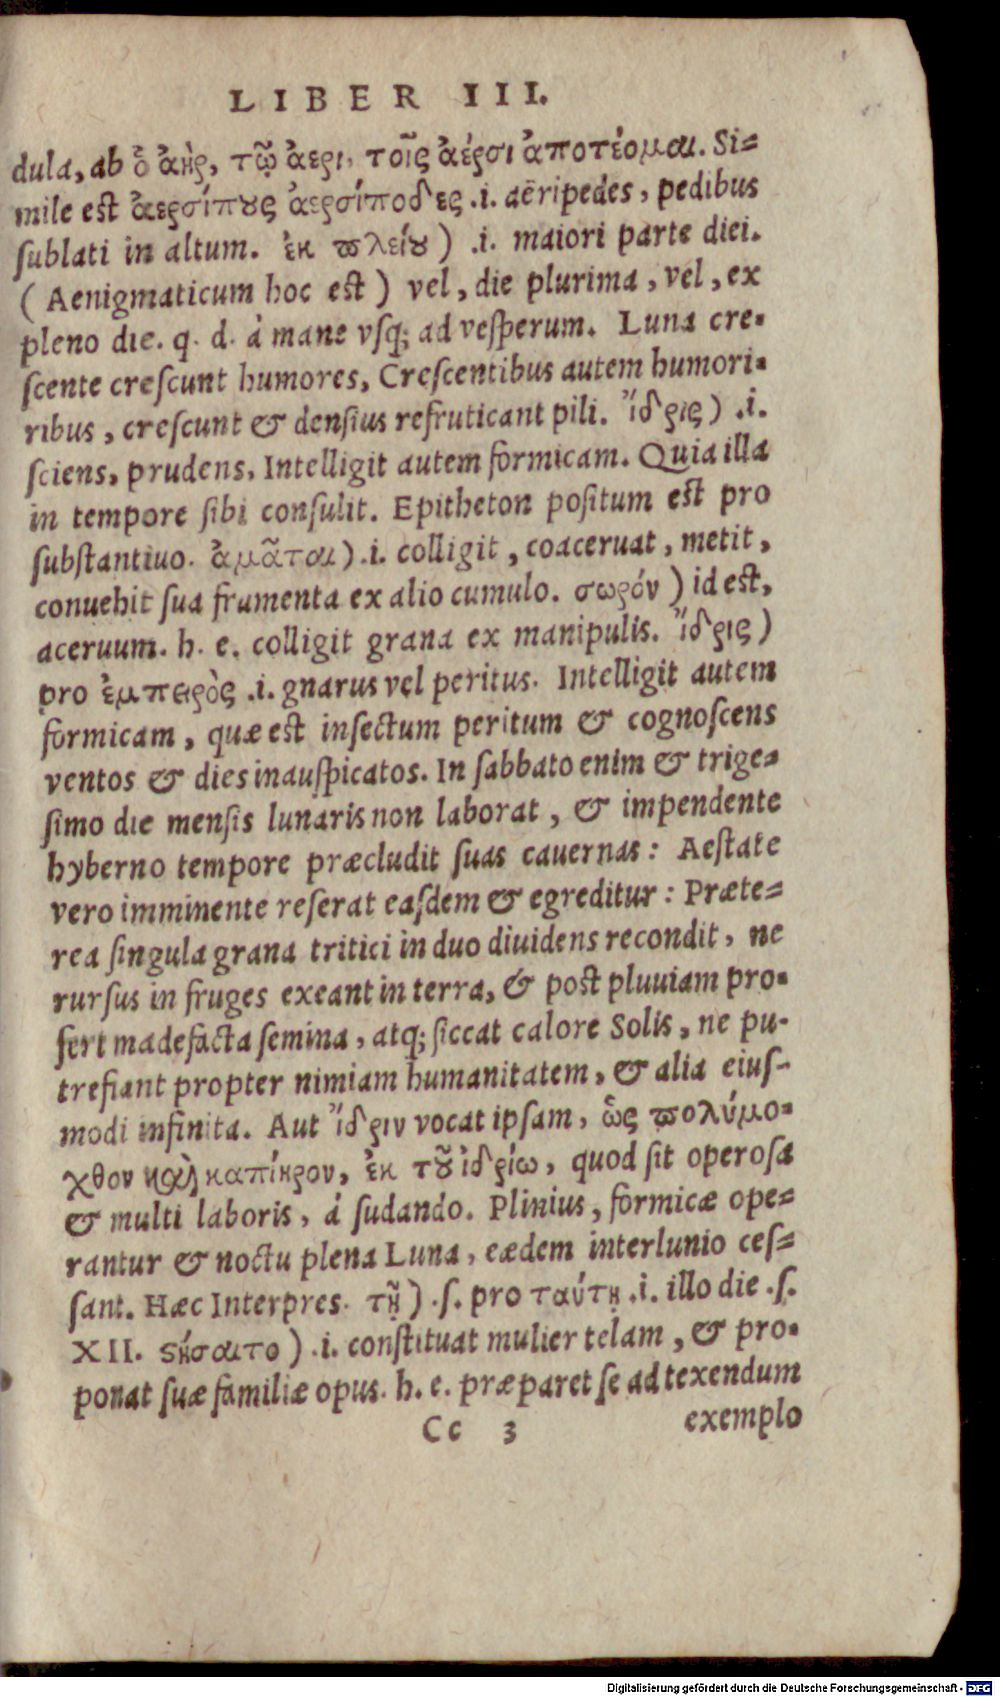 LIBER III.
dula, ab ὁ ἀὴρ, τῷ ἀερι, τοῖς ἀέρσι ἀποτέομαι. Si-
mile est ἀερσίπους ἀερσίποδες .i. aëripedes, pedibus
sublati in altum. ἐκ πλείου ) .i. maiori parte diei.
( Aenigmaticum hoc est ) vel, die plurima, vel, ex
pleno die. q. d. à mane vsq; ad vesperum. Luna cre-
scente crescunt humores, Crescentibus autem humori-
ribus, crescunt & densius refruticant pili. ἴδρις ) .i.
sciens, prudens, Intelligit autem formicam. Quia illa
in tempore sibi consulit. Epitheton positum est pro
substantiuo. ἀμᾶται ) .i. colligit, coaceruat, metit,
conuehit sua frumenta ex alio cumulo. σωρόν ) id est,
aceruum. h. e. colligit grana ex manipulis. ἴδρις )
pro ἐμπειρὸς .i. gnarus vel peritus. Intelligit autem
formicam, quæ est insectum peritum & cognoscens
ventos & dies inauspicatos. In sabbato enim & trige-
simo die mensis lunaris non laborat, & impendente
hyberno tempore præcludit suas cauernas: Aestate
vero imminente reserat easdem & egreditur: Præte-
rea singula grana tritici in duo diuidens recondit, ne
rursus in fruges exeant in terra, & post pluuiam pro-
fert madefacta semina, atq; siccat calore Solis, ne pu-
trefiant propter nimiam humanitatem, & alia eius-
modi infinita. Aut ἴδριν vocat ipsam, ὡς πολύμο-
χθον καὶ καπίκρον, ἐκ τοῦ ἰδρίω, quod sit operosa
& multi laboris, á sudando. Plinius, formicæ ope-
rantur & noctu plena Luna, eædem interlunio ces-
sant. Hæc Interpres. τῇ ) .s. pro ταύτῃ .i. illo die .s.
XII. στήσαιτο ) .i. constituat mulier telam, & pro-
ponat suæ familiæ opus. h. e. præparet se ad texendum
Cc 3 exemplo
Digitalisierung gefördert durch die Deutsche Forschungsgemeinschaft - DFG